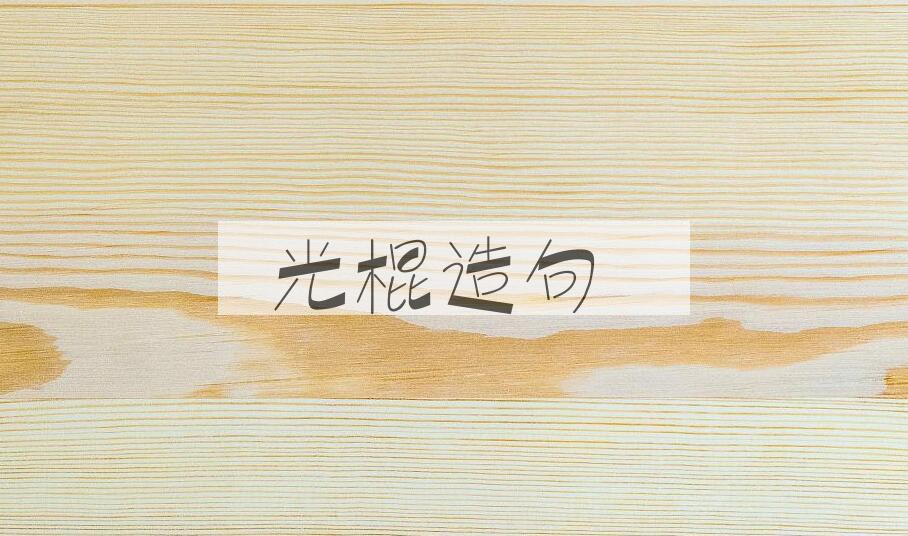 光棍造句